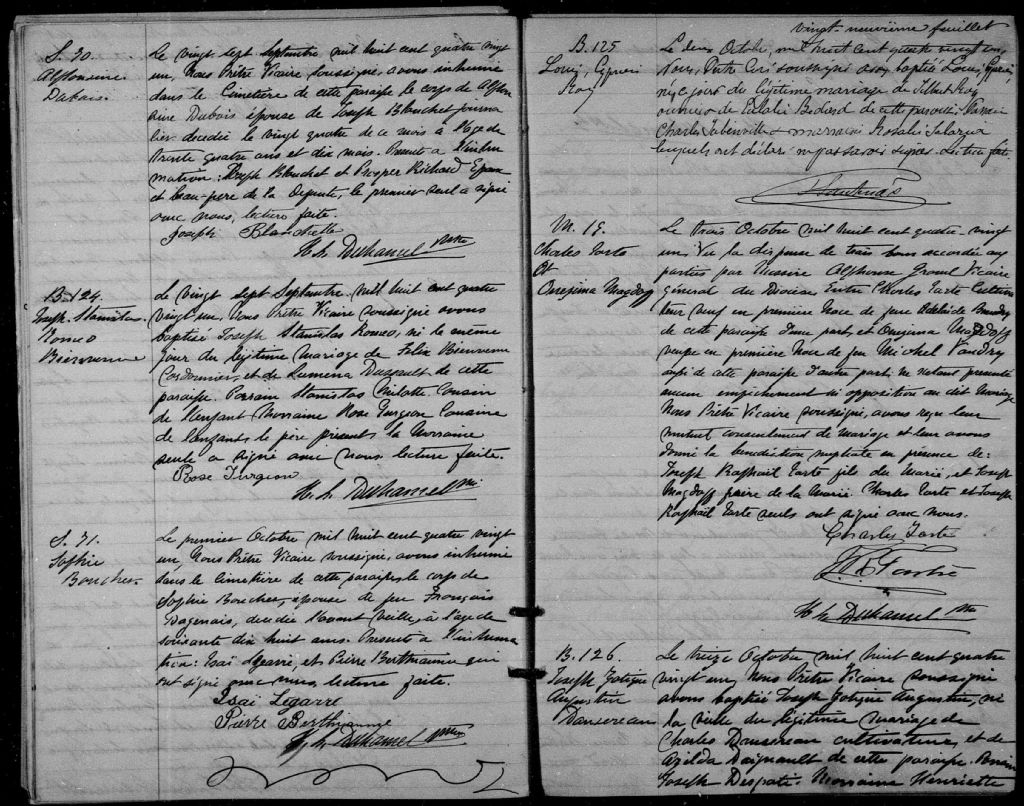 S. 70
Alphonsine
Dubois.
Le vingt sept Septembre mil huit cent quatre vingt
un, Nous Prêtre Vicaire soussigné, avons inhumé
dans le Cimetière de cette paroisse le corps de Alphon
sine Dubois épouse de Joseph Blanchet journa
lier décédée le vingt quatre de ce mois à l'âge de
trente quatre ans et dix mois. Présents à l'inhu
mation: Joseph Blanchet et Prosper Richard Epoux
et beau-père de la Défunte, le premier seul a signé
avec nous, lecture faite.
Joseph Blanchette
H. h. Duhamel ptre
B. 124.
Joseph. Stanislas
Romeo
Bienvenue
Le vingt Sept Septembre mil huit cent quatre
vingt un, Nous Prêtre Vicaire soussigné avons
baptisé Joseph Stanislas Romeo, né le même
jour du légitime mariage de Felix Bienvenue
Cordonnier, et de Lumena Dusault de cette
paroisse. Parrain Stanislas Milotte Cousin
de l'enfant Marraine Rose Turgeon Cousine
de l'enfant, le père présent la Marraine
seule a signé avec nous lecture faite.
Rose Turgeon
H. h. Duhamel
S. 71.
Sophie
Boucher
Le premier Octobre mil huit cent quatre vingt
un, Nous Prêtre Vicaire soussigné, avons inhumé
dans le Cimetière de cette paroisse le corps de
Sophie Boucher, épouse de feu François
Dagenais, décédée l'avant veille, à l'âge de
soixante dix huit ans. Présents à l'inhuma
tion: Isaï Legarré, et Pierre Berthiaume qui
ont signé avec nous, lecture faite.
Isaï Legarre
Pierre Berthiaume
H. h. Duhamel
vingt-neuvième feuillet
B. 125
Louis, Cyprien
Roy
Le deux Octobre, mil huit cent quatre vingt un,
Nous, Prêtre Curé soussigné avons baptisé Louis, Cyprien,
né ce jour du légitime mariage de Gilbert Roy
et de Bedard de cette paroisse. Parrain
Charles marraine Rosalie
lesquels ont déclaré ne pas savoir signer. Lecture faite.
M. 19.
Charles Tarte
Et
Onezima Magdoff
Le trois Octobre mil huit cent quatre-vingt
un, Vu la dispense de trois bans accordée aux
parties par Messire Alphonse Vicaire
général du Diocèse Entre Charles Tarte Cultiva
teur veuf en première Noce de feue Adelaide
de cette paroisse d'une part, et Onezima Magdoff
veuve en première Noce de feu Michel Vandry
aussi de cette paroisse d'autre part; ne s'étant présenté
aucun empêchement ni opposition au dit Mariage
Nous Prêtre Vicaire soussigné, avons reçu leur
mutuel consentement de Mariage et leur avons
donné la bénédiction nuptiale en présence de:
Joseph Raphaïl Tarte fils du Marié, et Joseph
Magdoff frère de la Mariée. Charles Tarte et Joseph
Raphaïl Tarte seuls ont signé avec nous.
Charles Tarte
H. h. Duhamel
B. 126.
Joseph Gotique
Augustin
Dansereau
Le treize Octobre mil huit cent quatre
vingt un, Nous Prêtre Vicaire soussigné
avons baptisé Joseph Gotique Augustin, né
la veille du légitime mariage de
Charles Dansereau cultivateur, et de
Azilda Daignault de cette paroisse. Parrain
Joseph Despatis. Marraine Henriette